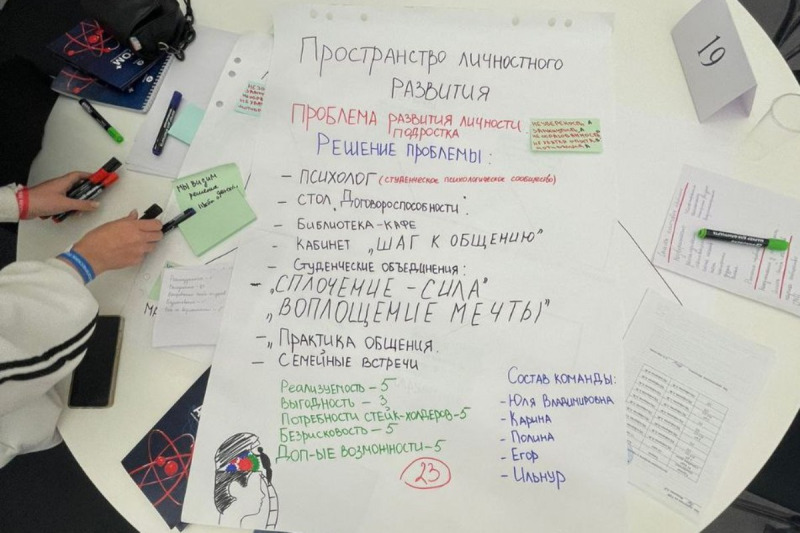 Пространство личностного
развития
Проблема развития личности
подростка
Решение проблемы:
- психолог (студенческое психологическое сообщество)
- стол „Договороспособности".
- Библиотека-кафе
- кабинет „Шаг к общению"
- Студенческие объединения:
- „Сплочение - сила"
„Воплощение мечты"
- „Практика общения.
- Семейные встречи
Реализуемость - 5
Выгодность - 3
Потребности стейк-холдеров-5
Безрисковость - 5
Доп-ые возможности-5
23
Состав команды:
- Юля Владимировна
- Карина
- Полина
- Егор
- Ильнур
19
мы видим
решение